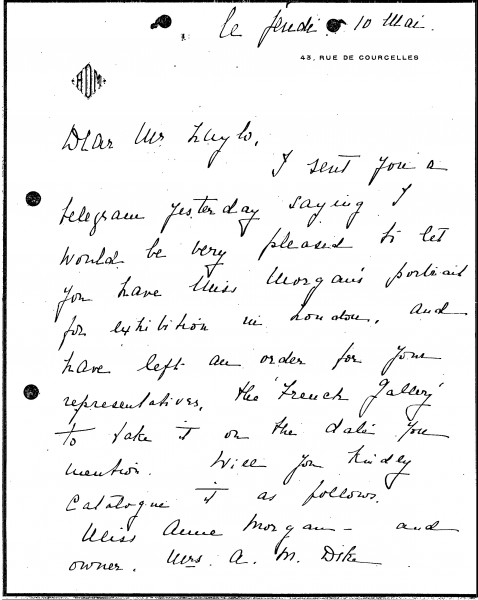 le jeudi 10 Mai.
43, RUE DE COURCELLES
ADM
Dear Mr
I sent you a
telegram yesterday saying I
would be very pleased to let
you have Miss Morgan's portrait
for exhibition in London, and
have left an order for your
representatives, the 'French Gallery'
to take it on the date you
mention. Will you kindly
catalogue it as follows.
Miss Anne Morgan - and
owner. Mrs. A. M. Dike